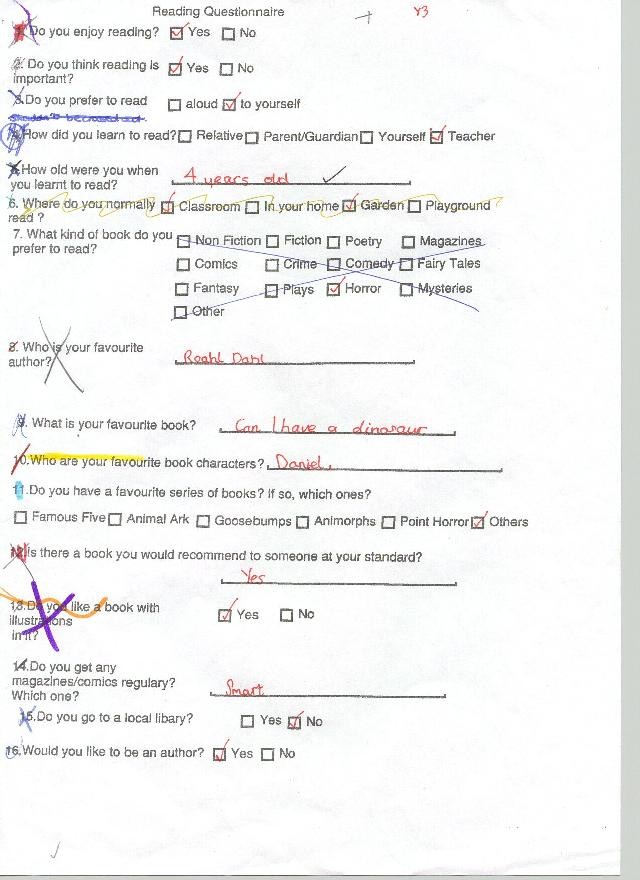 Reading Questionnaire
Y3
1. Do you enjoy reading? Yes No
2. Do you think reading is
important? Yes No
3. Do you prefer to read aloud to yourself
shouldn't be crossed out
4. How did you learn to read? Relative Parent/Guardian Yourself Teacher
5. How old were you when
you learnt to read? 4 years old
6. Where do you normally Classroom In your home Garden Playground
read ?
7. What kind of book do you Non Fiction Fiction Poetry Magazines
prefer to read?
Comics Crime Comedy Fairy Tales
Fantasy Plays Horror Mysteries
Other
8. Who is your favourite
author? Roahl Dahl
9. What is your favourite book? Can I have a dinosaur
10. Who are your favourite book characters? Daniel.
11. Do you have a favourite series of books? If so, which ones?
Famous Five Animal Ark Goosebumps Animorphs Point Horror Others
12. Is there a book you would recommend to someone at your standard?
Yes
13. Do you like a book with
illustrations Yes No
in it?
14. Do you get any
magazines/comics regulary?
Which one? Smart
15. Do you go to a local libary? Yes No
16. Would you like to be an author? Yes No